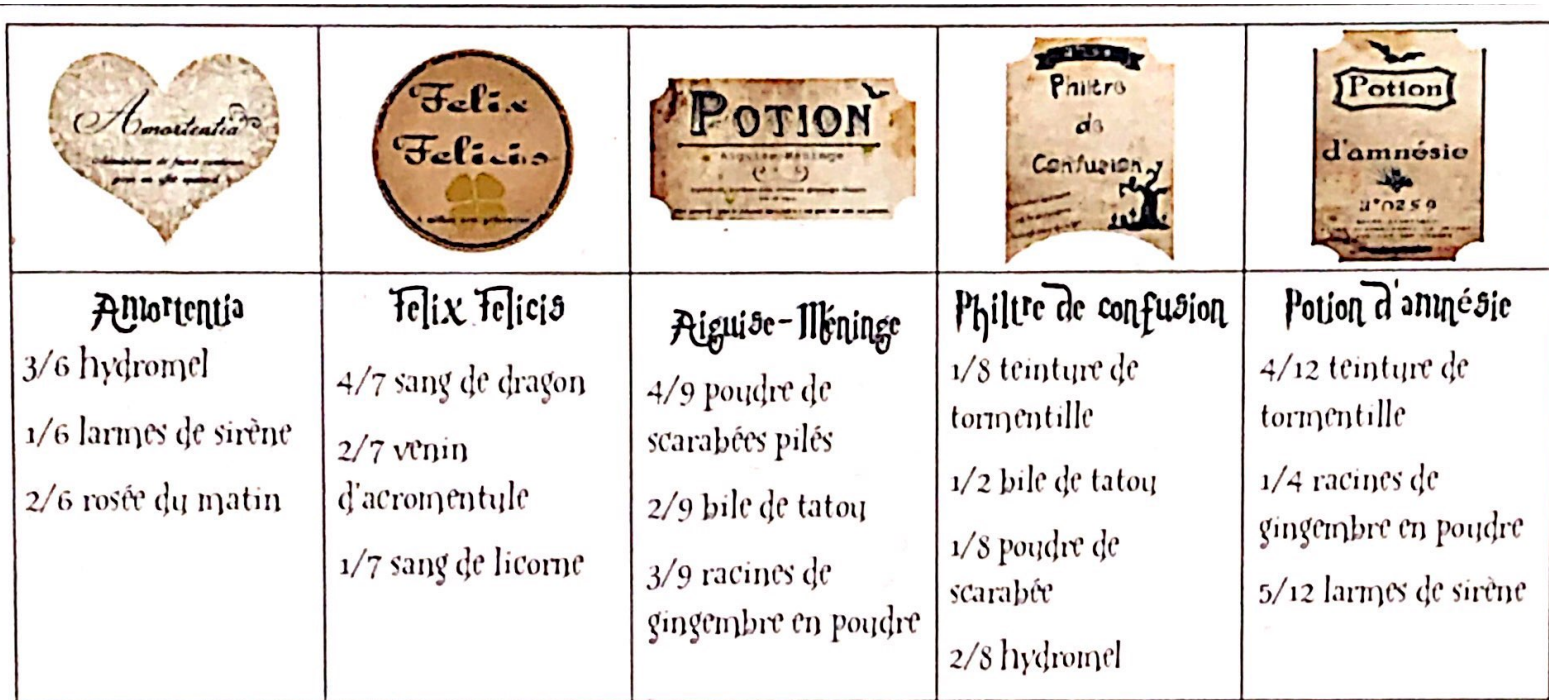 Amortentia
Felix
Felicis
POTION
Aiguise-Méninge
Philtre
de
Confusion
Potion
d'amnésie
n°0259
Amortentia
3/6 hydromel
1/6 larmes de sirène
2/6 rosée du matin
Felix Felicis
4/7 sang de dragon
2/7 venin
d'acromentule
1/7 sang de licorne
Aiguise-Méninge
4/9 poudre de
scarabées pilés
2/9 bile de tatou
3/9 racines de
gingembre en poudre
Philtre de confusion
1/8 teinture de
tormentille
1/2 bile de tatou
1/8 poudre de
scarabée
2/8 hydromel
Potion d'amnésie
4/12 teinture de
tormentille
1/4 racines de
gingembre en poudre
5/12 larmes de sirène